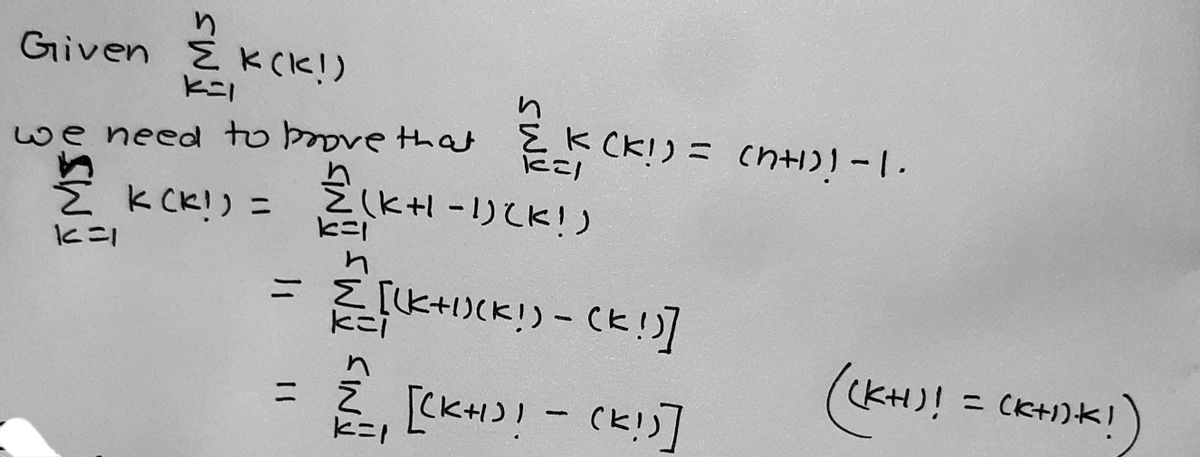 Given \sum_{k=1}^{n} k(k!)
we need to prove that \sum_{k=1}^{n} k(k!) = (n+1)! - 1.
\sum_{k=1}^{n} k(k!) = \sum_{k=1}^{n} (k+1-1)(k!)
= \sum_{k=1}^{n} [(k+1)(k!) - (k!)]
= \sum_{k=1}^{n} [(k+1)! - (k!)] ((k+1)! = (k+1).k!)